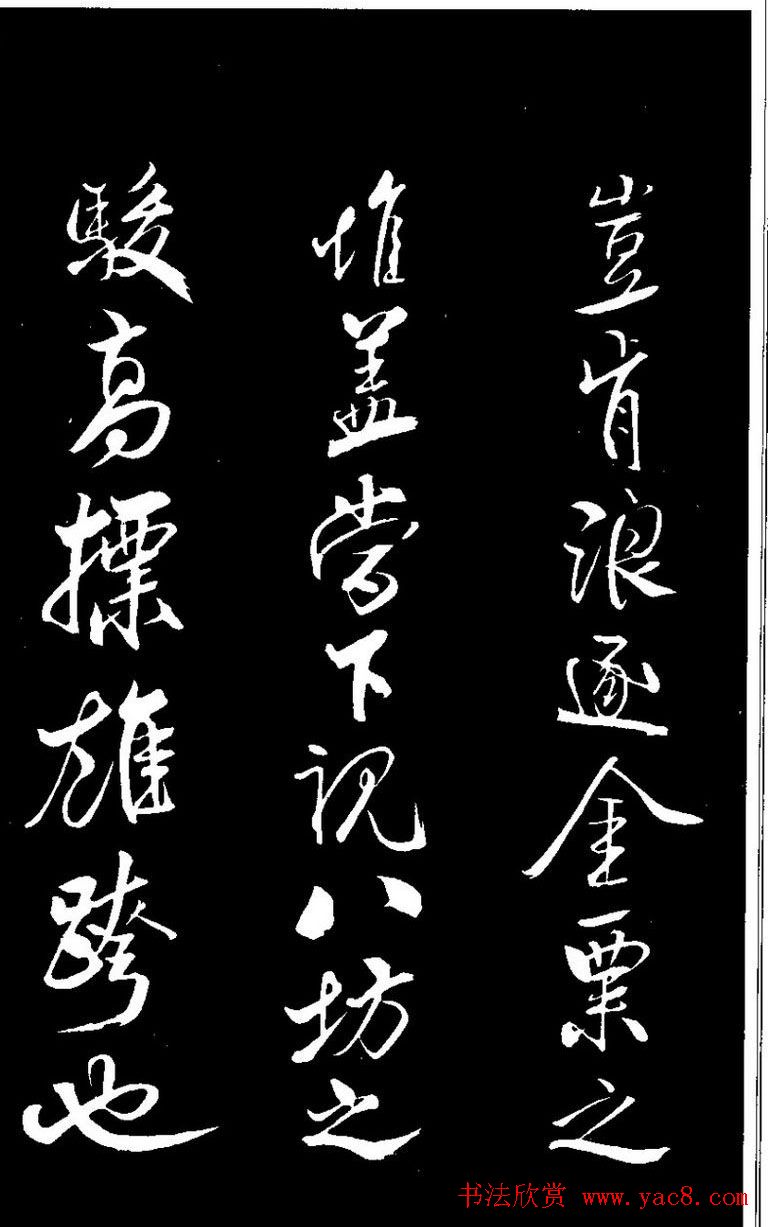 豈肯浪逐金粟之
堆盖嘗下視八坊之
駿高標雄跨也
书法欣赏 www.yac8.com